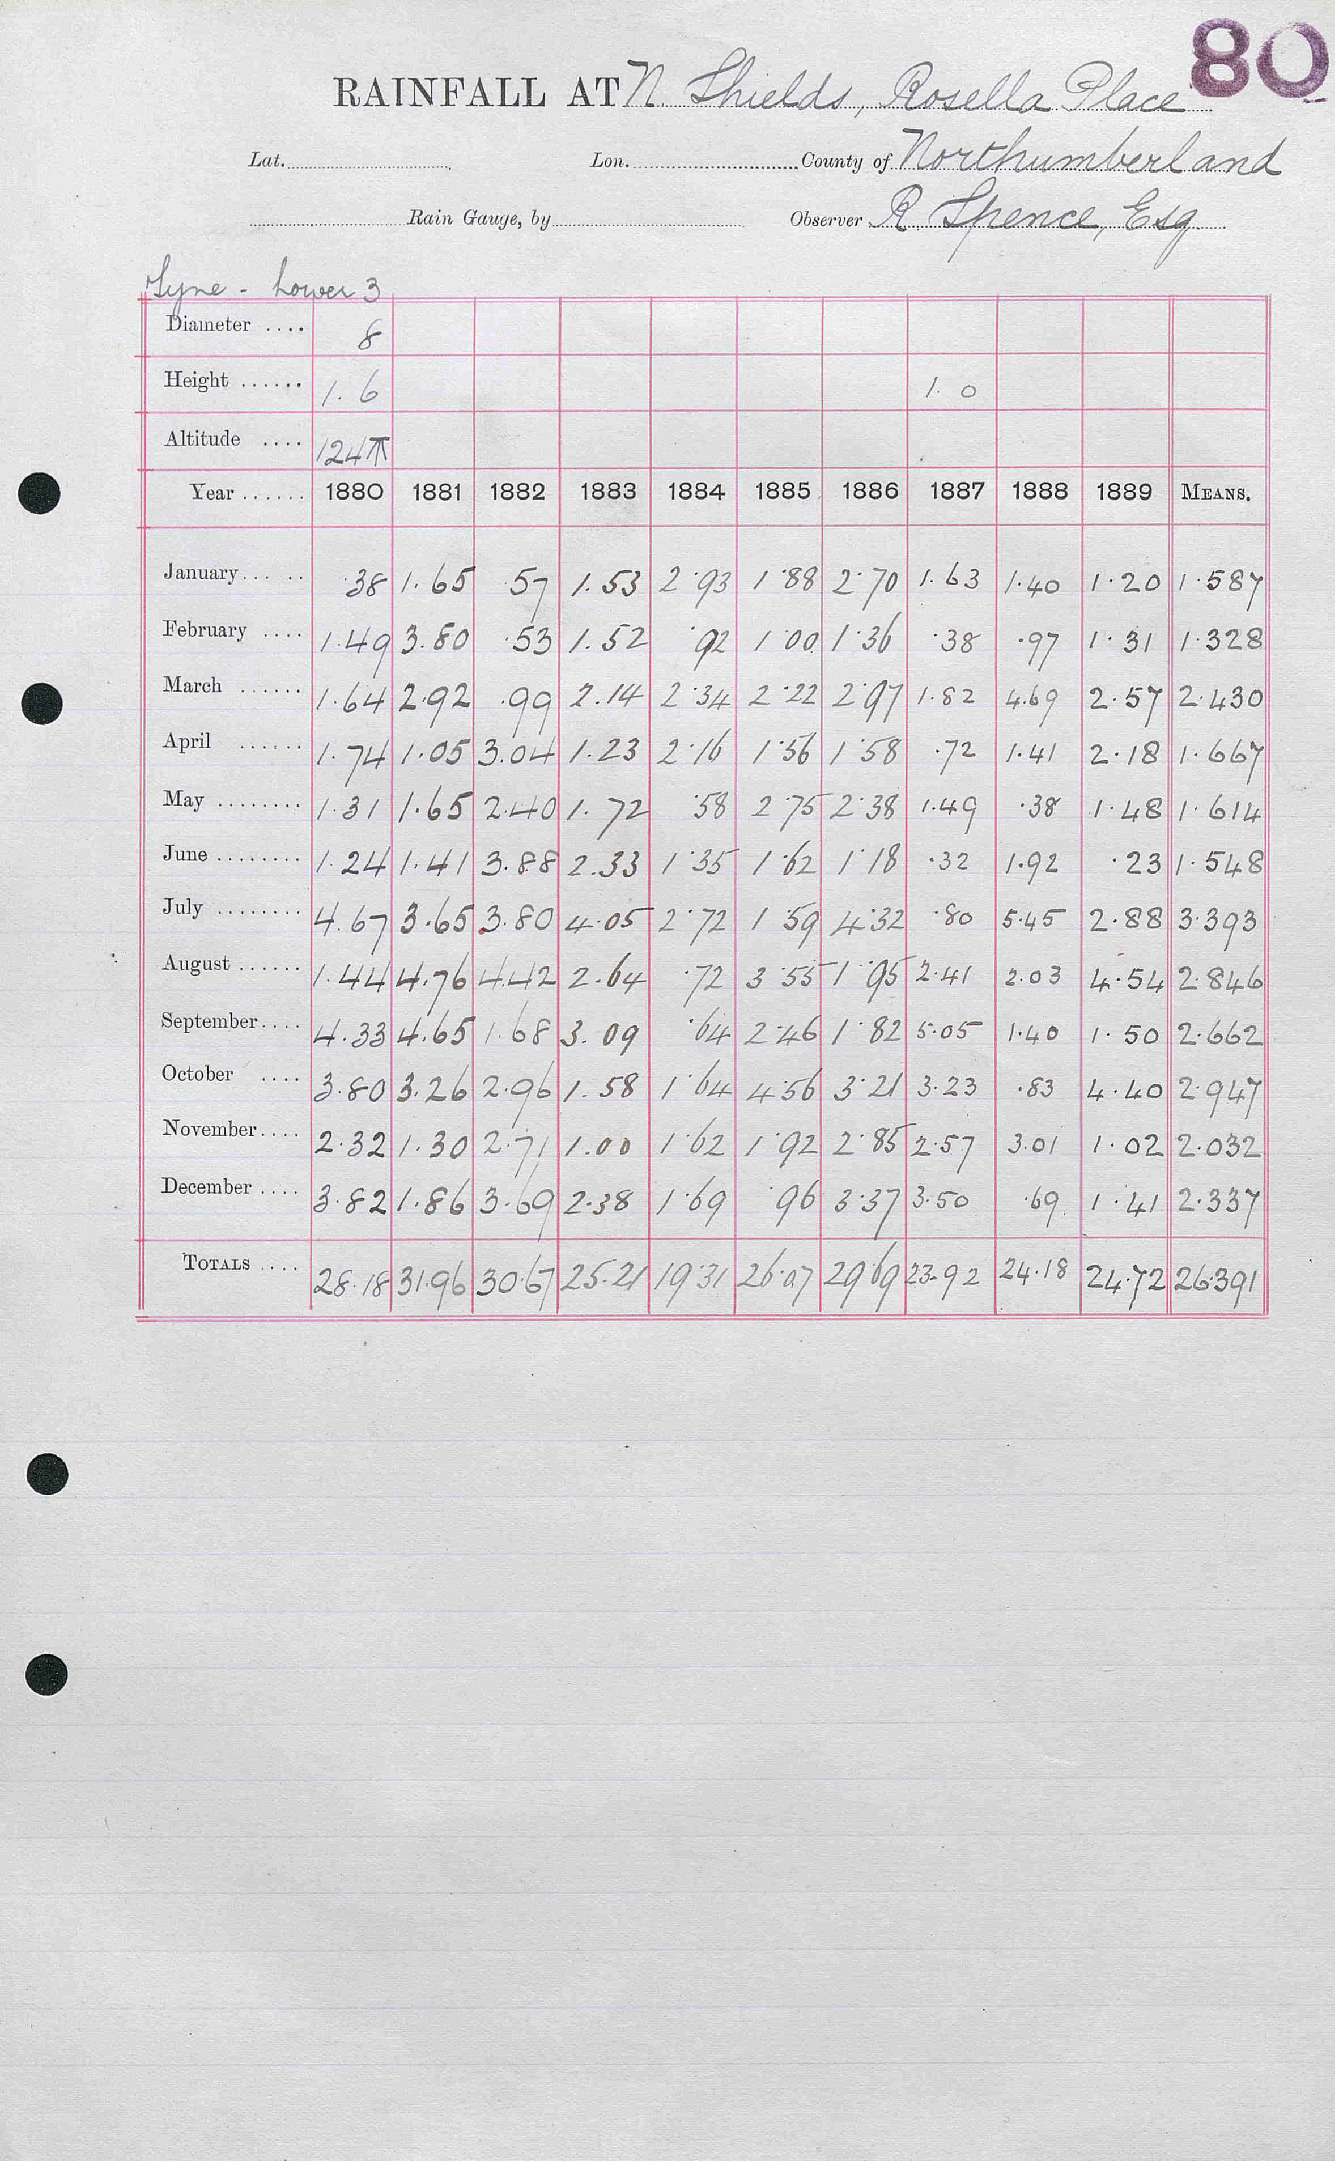 80
RAINFALL AT N. Shields, Rosella Place
Lat. Lon. County of Northumberland
Rain Gauge, by Observer R. Spence, Esq
Tyne - Lower 3
Diameter .... 8
Height ...... 1. 6 1. 0
Altitude .... 124
Year ...... 1880 1881 1882 1883 1884 1885 1886 1887 1888 1889 MEANS.
January ... .. .38 1.65 .57 1.53 2.93 1.88 2.70 1.63 1.40 1.20 1.587
February .... 1.49 3.80 .53 1.52 .92 1.00 1.36 .38 .97 1.31 1.328
March ...... 1.64 2.92 .99 2.14 2.34 2.22 2.97 1.82 4.69 2.57 2.430
April ...... 1.74 1.05 3.04 1.23 2.16 1.56 1.58 .72 1.41 2.18 1.667
May ........ 1.31 1.65 2.40 1.72 .58 2.75 2.38 1.49 .38 1.48 1.614
June ........ 1.24 1.41 3.88 2.33 1.35 1.62 1.18 .32 1.92 .23 1.548
July ........ 4.67 3.65 3.80 4.05 2.72 1.59 4.32 .80 5.45 2.88 3.393
August ...... 1.44 4.76 4.42 2.64 .72 3.55 1.95 2.41 2.03 4.54 2.846
September .... 4.33 4.65 1.68 3.09 .64 2.46 1.82 5.05 1.40 1.50 2.662
October .... 3.80 3.26 2.96 1.58 1.64 4.56 3.21 3.23 .83 4.40 2.947
November .... 2.32 1.30 2.71 1.00 1.62 1.92 2.85 2.57 3.01 1.02 2.032
December .... 3.82 1.86 3.69 2.38 1.69 .96 3.37 3.50 .69 1.41 2.337
TOTALS .... 28.18 31.96 30.67 25.21 19.31 26.07 29.69 23.92 24.18 24.72 26.391